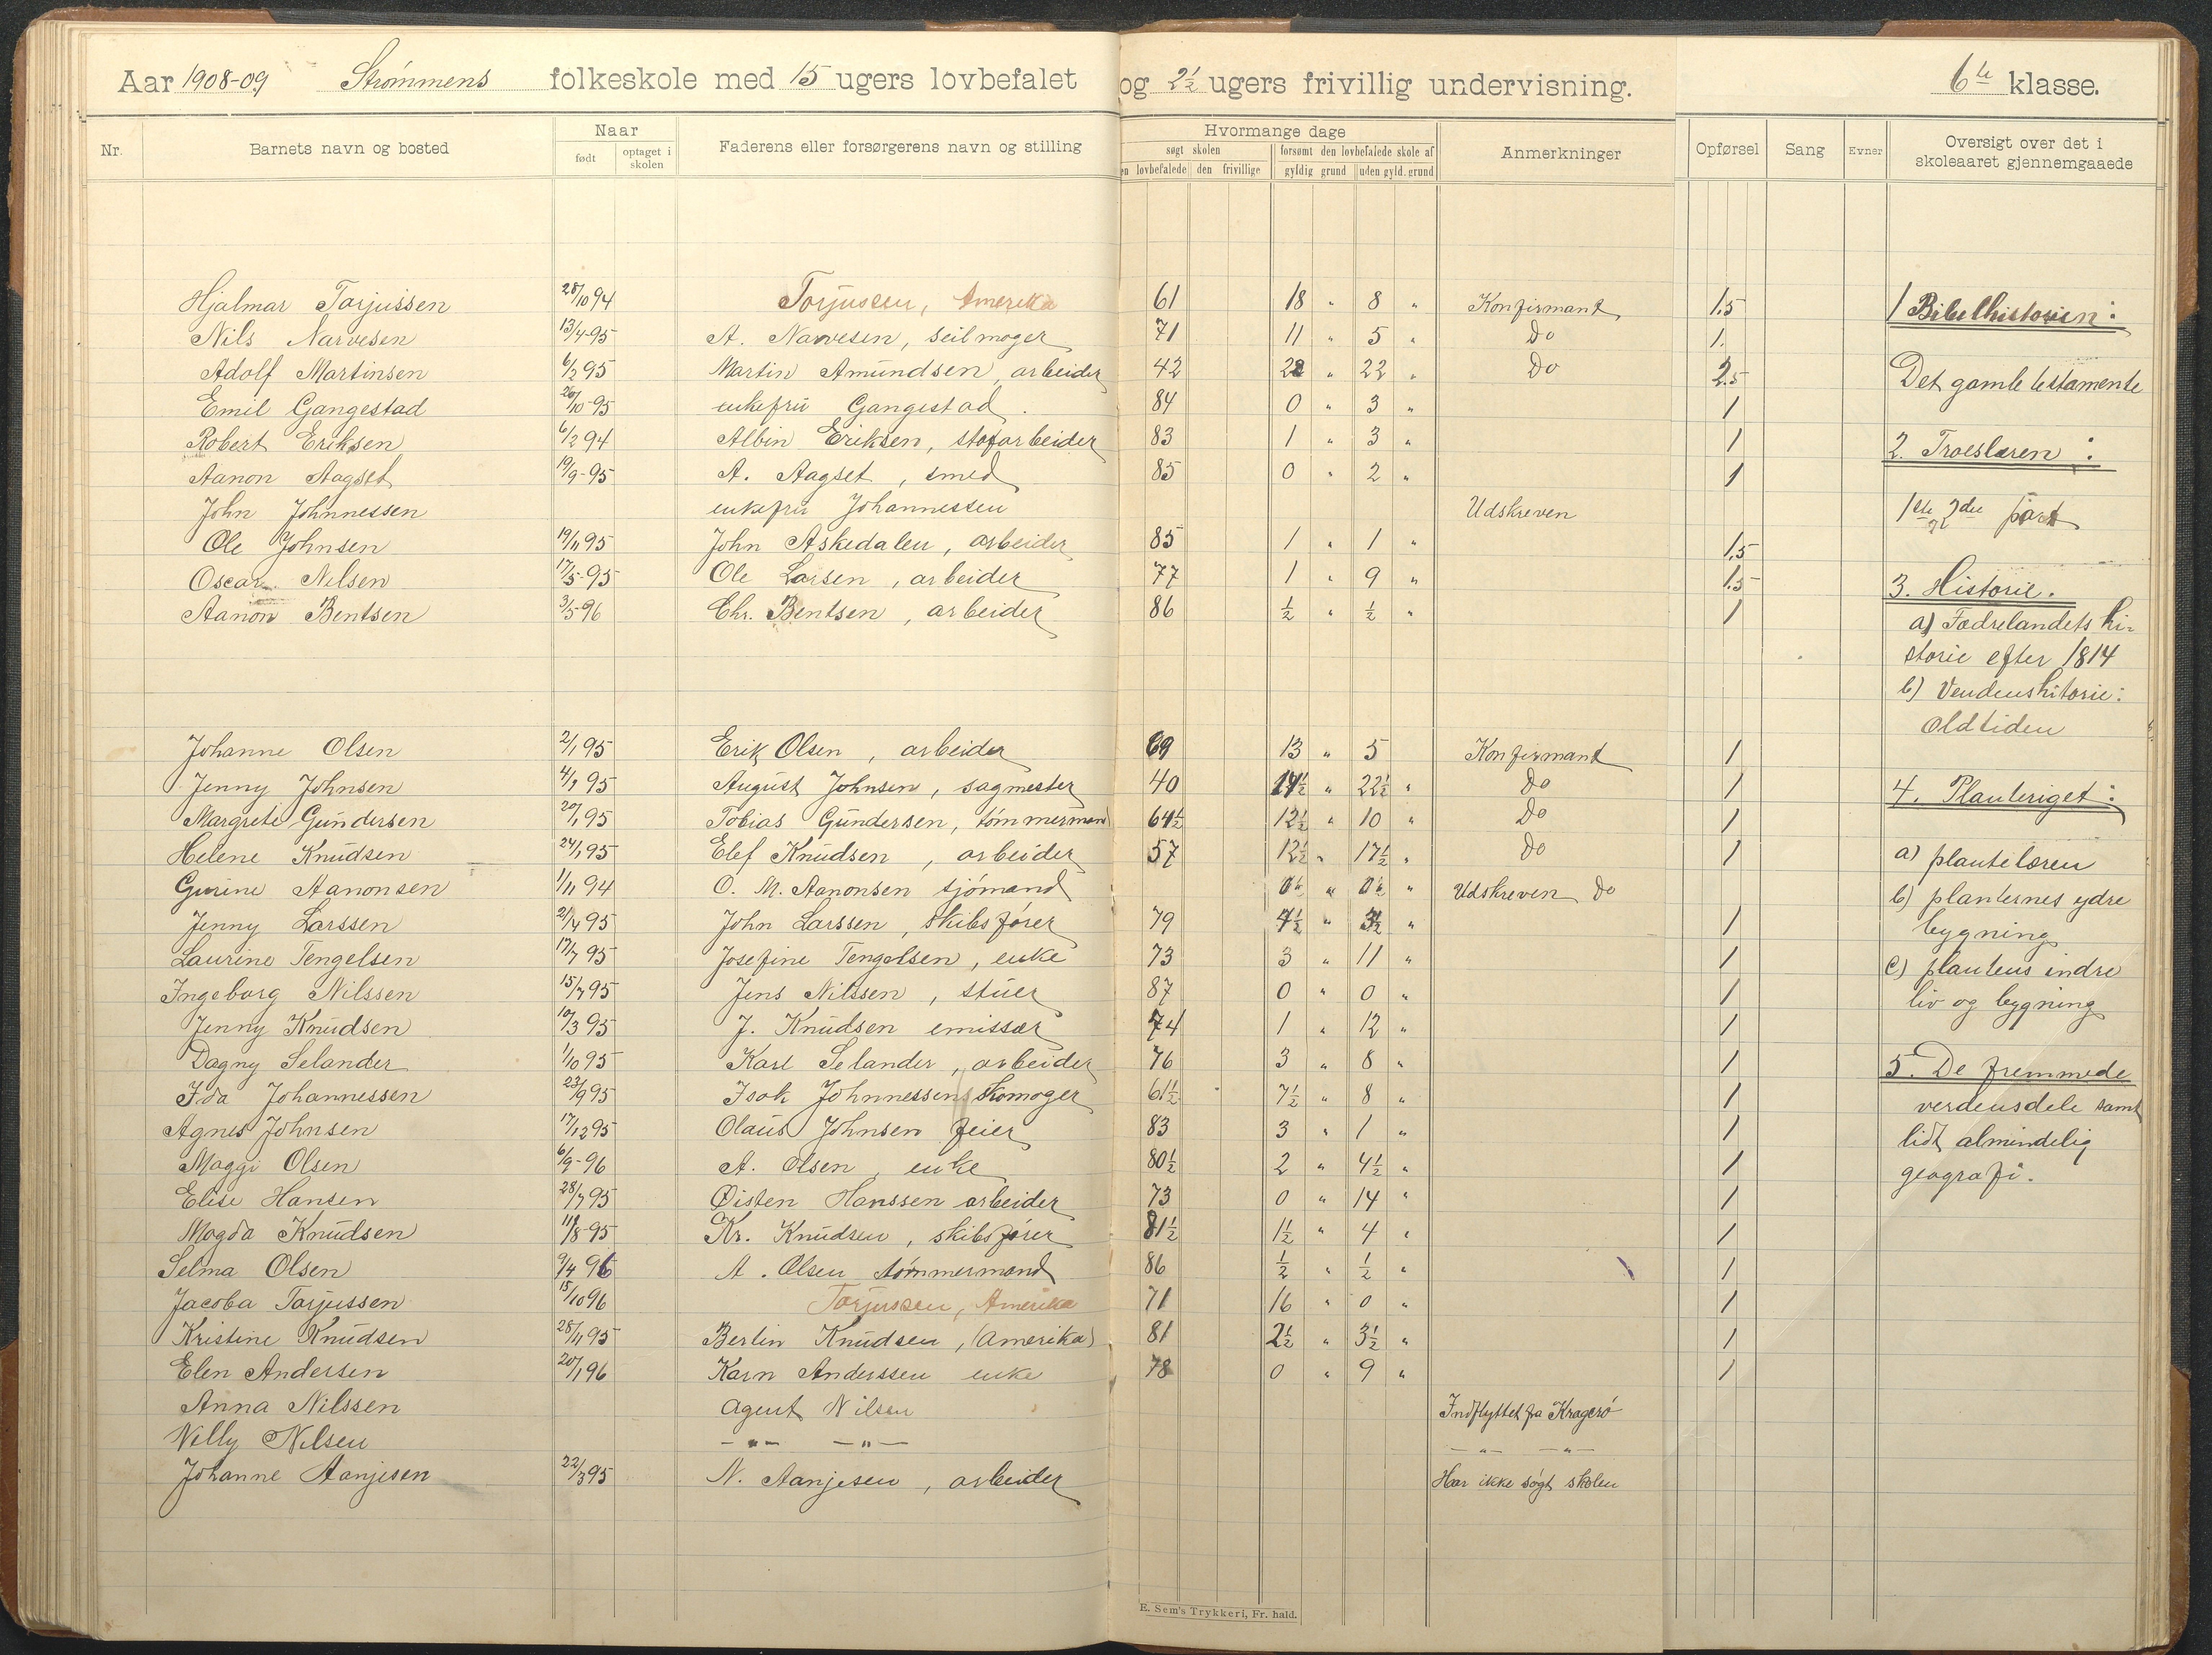 Aar 1908-09 Strømmens folkeskole med 15 ugers lovbefalet og 2½ ugers frivillig undervisning. 6te klasse.
Nr. Barnets navn og bosted Naar født optaget i skolen Faderens eller forsørgerens navn og stilling Hvormange dage søgt skolen den lovbefalede den frivillige forsømt den lovbefalede skole af gyldig grund uden gyld. grund Anmerkninger Opførsel Sang Evner Oversigt over det i skoleaaret gjennemgaaede
Hjalmar Torjussen 28/10 94 Torjussen, Amerika 61 18 " 8 " Konfirmant 1.5
Nils Narvesen 13/4-95 A. Narvesen, seilmager 71 11 " 5 " Do 1.
Adolf Martinsen 6/2 95 Martin Amundsen, arbeider 42 22 " 22 " Do 2.5
Emil Gangestad 26/10-95 enkefru Gangestad. 84 0 " 3 " 1
Robert Eriksen 6/2 94 Albin Eriksen, stofarbeider 83 1 " 3 " 1
Aanon Aagset 19/9-95 A. Aagset, smed 85 0 " 2 " 1
John Johnnessen enkefru Johannessen Udskreven
Ole Johnsen 19/11 95 John Askedalen, arbeider 85 1 " 1 " 1.5
Oscar Nilsen 17/5-95 Ole Larsen, arbeider 77 1 " 9 " 1.5
Aanon Bentsen 3/5-96 Chr. Bentsen, arbeider 86 ½ " ½ " 1
Johanne Olsen 2/1 95 Erik Olsen, arbeider 69 13 " 5 Konfirmant 1
Jenny Johnsen 4/1 95 August Johnsen, sagmester 40 14½ " 22½ " Do 1
Margrete Gundersen 20/1 95 Tobias Gundersen, tømmermand 64½ 12½ " 10 " Do 1
Helene Knudsen 24/1 95 Elef Knudsen, arbeider 57 12½ " 17½ " Do 1
Gurine Aanonsen 1/11 94 O. M. Aanonsen sjømand " " Udskreven Do
Jenny Larssen 2/4 95 John Larssen, skibsfører 79 4½ " 3½ " 1
Laurine Tengelsen 17/7 95 Josefine Tengelsen, enke 73 3 " 11 " 1
Ingeborg Nilssen 15/7 95 Jens Nilssen, stuer 87 0 " 0 " 1
Jenny Knudsen 10/3 95 J. Knudsen emissær 74 1 " 12 " 1
Dagny Selander 1/10 95 Karl Selander, arbeider 76 3 " 8 " 1
Ida Johannessen 23/9 95 Isak Johnnessen skomager 61½ 7½ " 8 " 1
Agnes Johnsen 17/12 95 Olaus Johnsen feier 83 3 " 1 " 1
Maggi Olsen 6/9-96 A. Olsen, enke 80½ 2 " 4½ " 1
Elise Hansen 28/7 95 Øisten Hanssen arbeider 73 0 " 14 " 1
Magda Knudsen 11/8-95 Kr. Knudsen, skibsfører 81½ 1½ " 4 " 1
Selma Olsen 9/4 96 A. Olsen tømmermand 86 ½ " ½ " 1
Jacoba Torjussen 15/10 96 Torjussen, Amerika 71 16 " 0 " 1
Kristine Knudsen 28/11 95 Berlin Knudsen, (Amerika) 81 2½ " 3½ " 1
Elen Andersen 20/1 96 Karn Anderssen enke 78 0 " 9 " 1
Anna Nilssen Agent Nilsen Indflyttet fra Kragerø
Nelly Nilsen —"— —"— —"— —"—
Johanne Aanjesen 22/3 95 N. Aanjesen, arbeider Har ikke søgt skolen
E. Sem's Trykkeri, Fr. hald.
1 Bibelhistorien:
Det gamle testamente
2. Troeslæren:
1ste og 2den part
3. Historie.
a) Fædrelandets hi-
storie efter 1814
b) Verdenshitorie:
Oldtiden
4. Planteriget:
a) plantelæren
b) planternes ydre
bygning
c) plantens indre
liv og bygning
5. De fremmede
verdensdele samt
lidt almindelig
geografi.